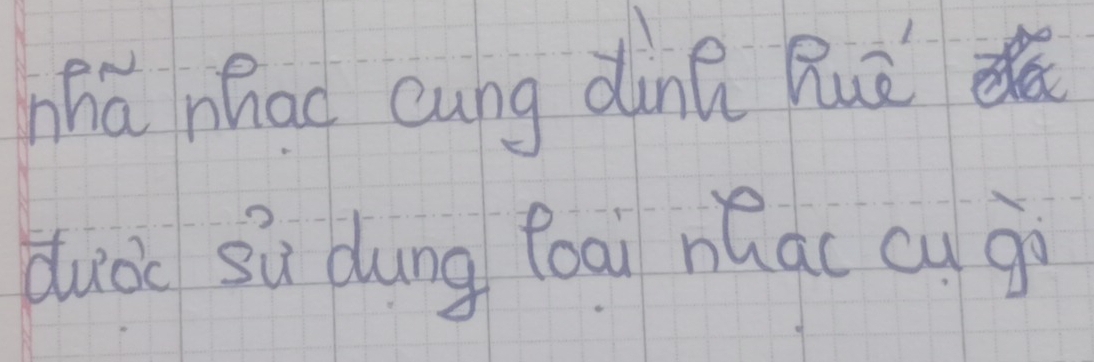 nhã nhạc cung đình huế đã
được sử dụng loại nhạc cụ gì